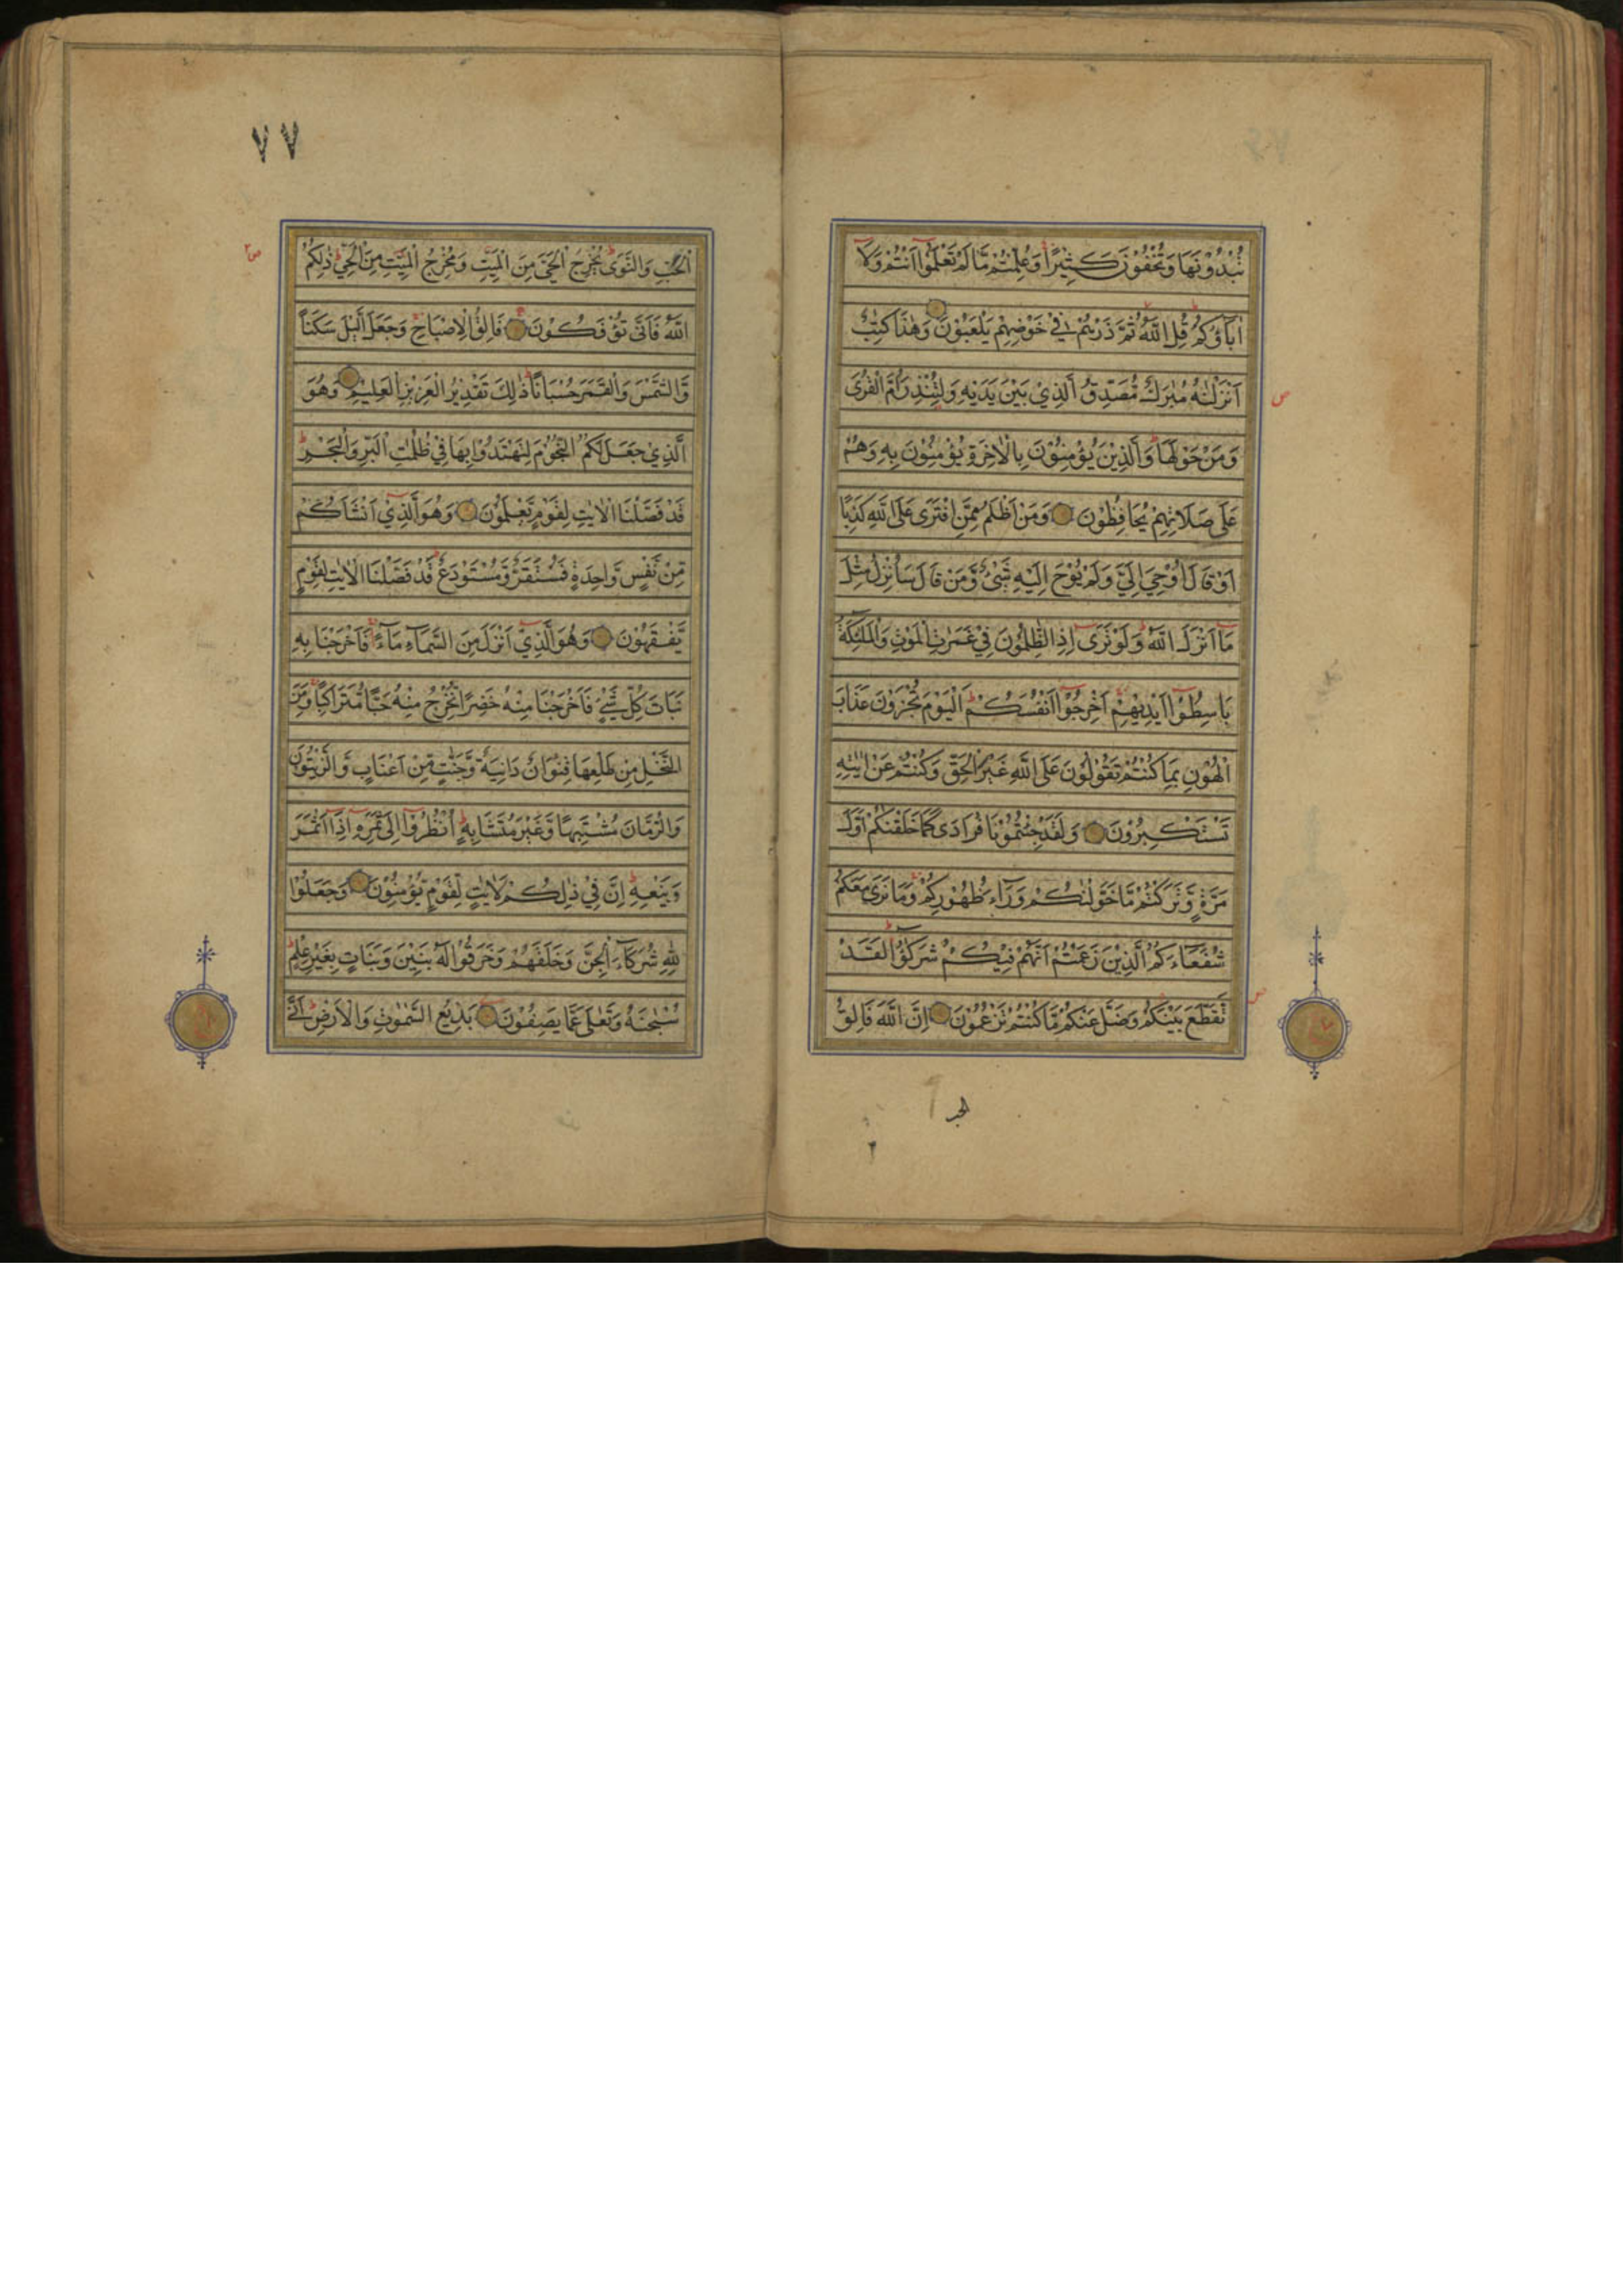 تُبْدُوْنَهَا وَتُخْفُوْنَ كَثِيْرًا وَعُلِّمْتُمْ مَّا لَمْ تَعْلَمُوْٓا اَنْتُمْ وَلَآ
اٰبَآؤُكُمْ قُلِ اللّٰهُ ثُمَّ ذَرْهُمْ فِيْ خَوْضِهِمْ يَلْعَبُوْنَ وَهٰذَا كِتٰبٌ
اَنْزَلْنٰهُ مُبٰرَكٌ مُّصَدِّقُ الَّذِيْ بَيْنَ يَدَيْهِ وَلِتُنْذِرَ اُمَّ الْقُرٰى
وَمَنْ حَوْلَهَا وَالَّذِيْنَ يُؤْمِنُوْنَ بِالْاٰخِرَةِ يُؤْمِنُوْنَ بِهٖ وَهُمْ
عَلٰى صَلَاتِهِمْ يُحَافِظُوْنَ وَمَنْ اَظْلَمُ مِمَّنِ افْتَرٰى عَلَى اللّٰهِ كَذِبًا
اَوْ قَالَ اُوْحِيَ اِلَيَّ وَلَمْ يُوْحَ اِلَيْهِ شَيْءٌ وَّمَنْ قَالَ سَاُنْزِلُ مِثْلَ
مَآ اَنْزَلَ اللّٰهُ وَلَوْ تَرٰٓى اِذِ الظّٰلِمُوْنَ فِيْ غَمَرٰتِ الْمَوْتِ وَالْمَلٰٓئِكَةُ
بَاسِطُوْٓا اَيْدِيْهِمْ اَخْرِجُوْٓا اَنْفُسَكُمْ اَلْيَوْمَ تُجْزَوْنَ عَذَابَ
الْهُوْنِ بِمَا كُنْتُمْ تَقُوْلُوْنَ عَلَى اللّٰهِ غَيْرَ الْحَقِّ وَكُنْتُمْ عَنْ اٰيٰتِهٖ
تَسْتَكْبِرُوْنَ وَلَقَدْ جِئْتُمُوْنَا فُرَادٰى كَمَا خَلَقْنٰكُمْ اَوَّلَ
مَرَّةٍ وَّتَرَكْتُمْ مَّا خَوَّلْنٰكُمْ وَرَآءَ ظُهُوْرِكُمْ وَمَا نَرٰى مَعَكُمْ
شُفَعَآءَكُمُ الَّذِيْنَ زَعَمْتُمْ اَنَّهُمْ فِيْكُمْ شُرَكٰٓؤُا لَقَدْ
تَّقَطَّعَ بَيْنَكُمْ وَضَلَّ عَنْكُمْ مَّا كُنْتُمْ تَزْعُمُوْنَ اِنَّ اللّٰهَ فَالِقُ
٧٧
الْحَبِّ وَالنَّوٰى يُخْرِجُ الْحَيَّ مِنَ الْمَيِّتِ وَمُخْرِجُ الْمَيِّتِ مِنَ الْحَيِّ ذٰلِكُمُ
اللّٰهُ فَاَنّٰى تُؤْفَكُوْنَ فَالِقُ الْاِصْبَاحِ وَجَعَلَ الَّيْلَ سَكَنًا
وَّالشَّمْسَ وَالْقَمَرَ حُسْبَانًا ذٰلِكَ تَقْدِيْرُ الْعَزِيْزِ الْعَلِيْمِ وَهُوَ
الَّذِيْ جَعَلَ لَكُمُ النُّجُوْمَ لِتَهْتَدُوْا بِهَا فِيْ ظُلُمٰتِ الْبَرِّ وَالْبَحْرِ
قَدْ فَصَّلْنَا الْاٰيٰتِ لِقَوْمٍ يَّعْلَمُوْنَ وَهُوَ الَّذِيْٓ اَنْشَاَكُمْ
مِّنْ نَّفْسٍ وَّاحِدَةٍ فَمُسْتَقَرٌّ وَّمُسْتَوْدَعٌ قَدْ فَصَّلْنَا الْاٰيٰتِ لِقَوْمٍ
يَّفْقَهُوْنَ وَهُوَ الَّذِيْٓ اَنْزَلَ مِنَ السَّمَآءِ مَآءً فَاَخْرَجْنَا بِهٖ
نَبَاتَ كُلِّ شَيْءٍ فَاَخْرَجْنَا مِنْهُ خَضِرًا نُّخْرِجُ مِنْهُ حَبًّا مُّتَرَاكِبًا وَمِنَ
النَّخْلِ مِنْ طَلْعِهَا قِنْوَانٌ دَانِيَةٌ وَّجَنّٰتٍ مِّنْ اَعْنَابٍ وَّالزَّيْتُوْنَ
وَالرُّمَّانَ مُشْتَبِهًا وَّغَيْرَ مُتَشَابِهٍ اُنْظُرُوْٓا اِلٰى ثَمَرِهٖٓ اِذَآ اَثْمَرَ
وَيَنْعِهٖ اِنَّ فِيْ ذٰلِكُمْ لَاٰيٰتٍ لِّقَوْمٍ يُّؤْمِنُوْنَ وَجَعَلُوْا
لِلّٰهِ شُرَكَآءَ الْجِنَّ وَخَلَقَهُمْ وَخَرَقُوْا لَهٗ بَنِيْنَ وَبَنَاتٍ بِغَيْرِ عِلْمٍ
سُبْحٰنَهٗ وَتَعٰلٰى عَمَّا يَصِفُوْنَ بَدِيْعُ السَّمٰوٰتِ وَالْاَرْضِ اَنّٰى